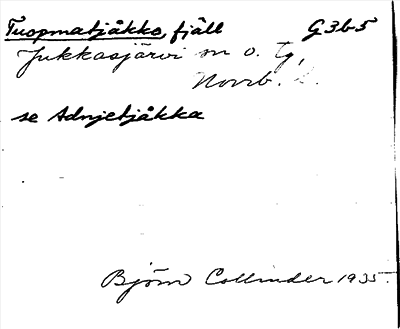 Tuopmatjåkko, fjäll G3b5
Jukkasjärvi sn o. tg,
Norrb. l.
se Adnjetjåkka
Björn Collinder 1935.